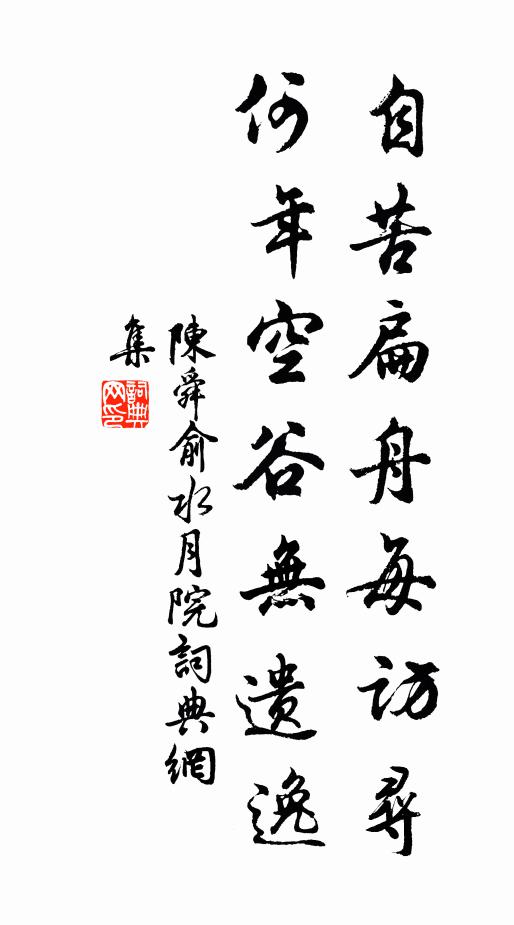 自苦扁舟每訪尋
何年空谷無遺逸
陳舜俞水月院詞典網
集
詞典网印